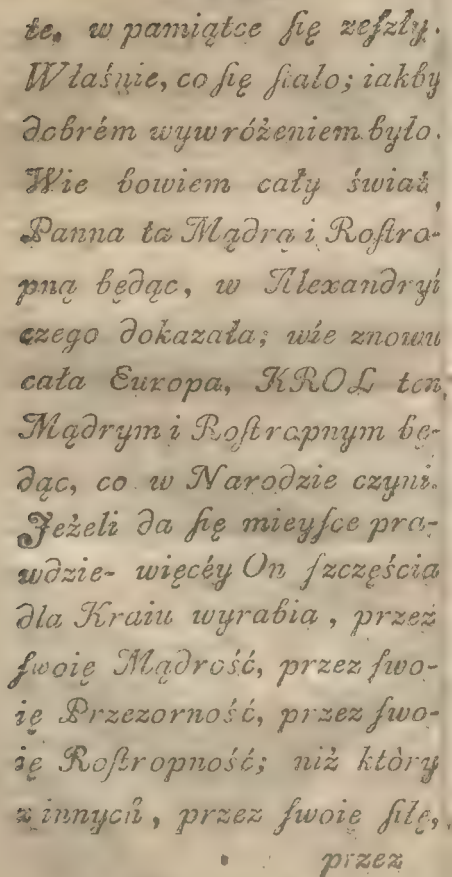 te, w pamiątce ſię zeſzły.
Właśnie, co ſię ſtało; iakby
dobrém wywróżeniem było.
Wie bowiem cały świat,
Panna ta Mądrą i Roſtro-
pną będąc, w Alexandryi
czego dokazała; wie znowu
cała Europa, KROL ten,
Mądrym i Roſtropnym bę-
dąc, co w Narodzie czyni.
Jeżeli da ſię mieyſce pra-
wdzie- więcéy On ſzczęścia
dla Kraiu wyrabia, przez
ſwoię Mądrość, przez ſwo-
ię Przezorność, przez ſwo-
ię Roſtropność; niż który
z innych, przez ſwoię ſiłę,
przez